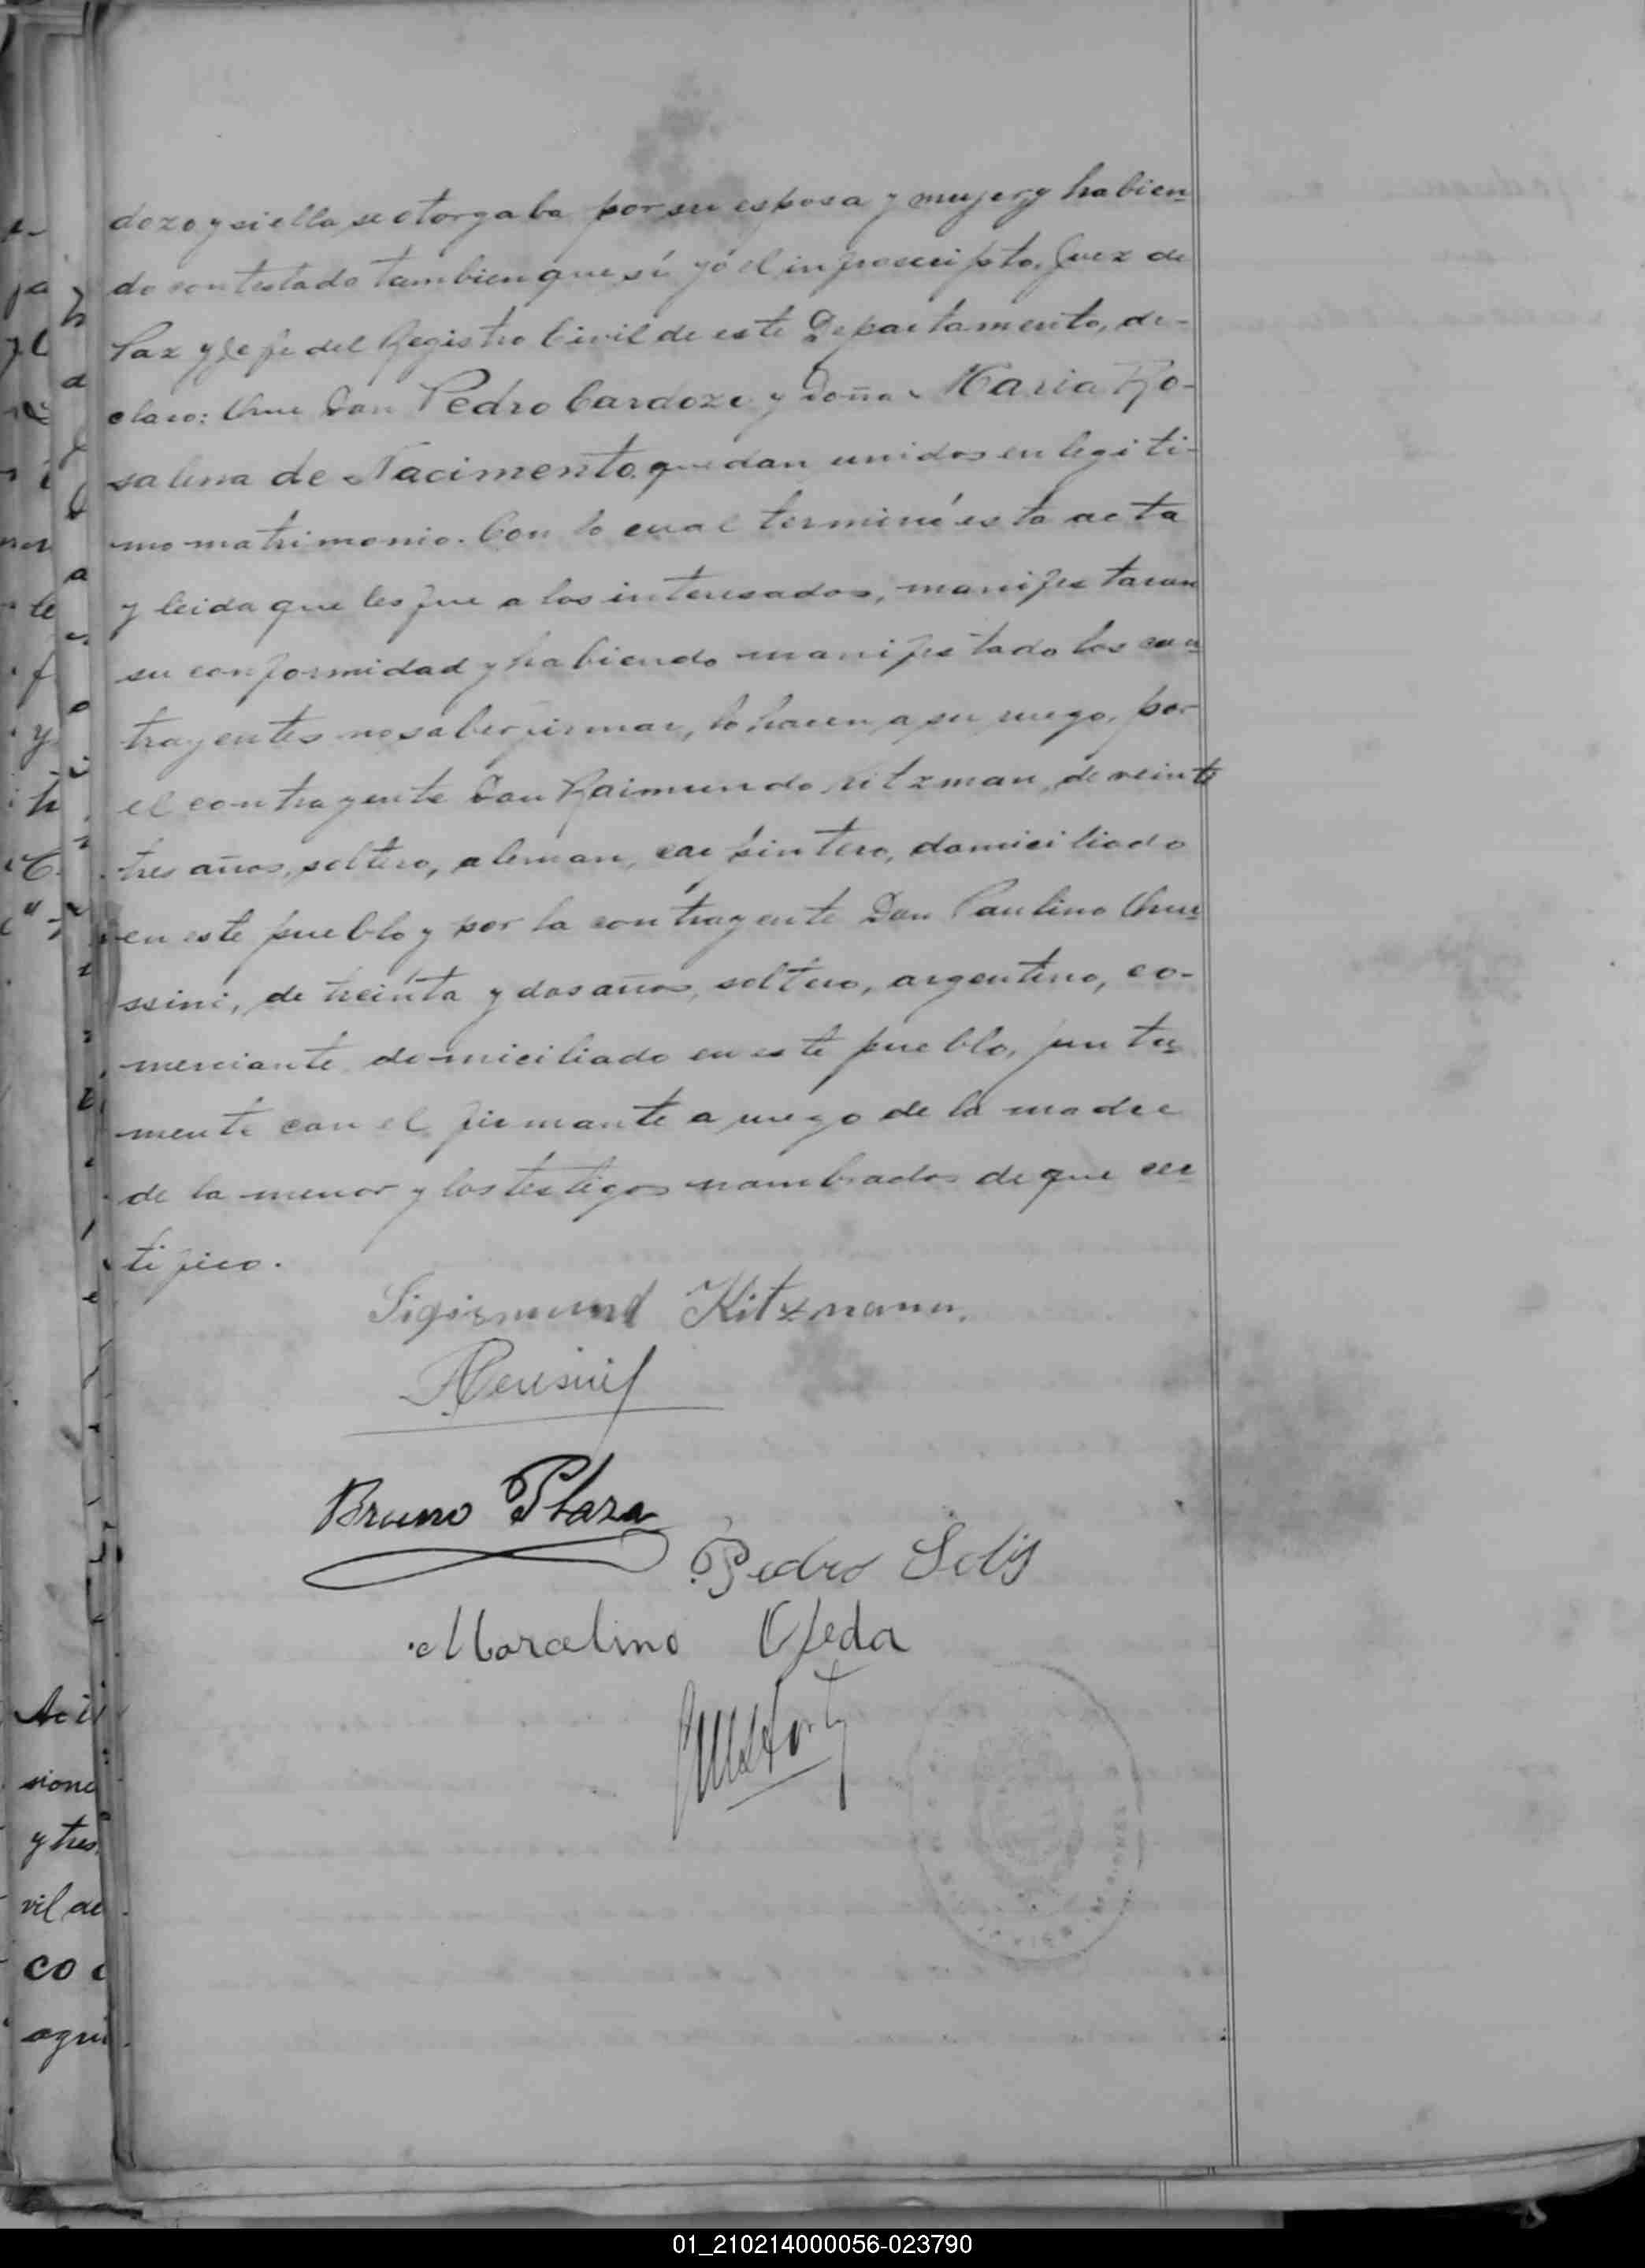 dozo y si ella se otorgaba por su esposa y mujer y habien
do contestado tambien que sí yó el infrascripto, Juez de
Paz y Jefe del Registro Civil de este Departamento, de-
claro: Que Don Pedro Cardozo y Doña Maria Ro-
salina de Nacimento quedan unidos en legiti-
mo matrimonio. Con lo cual terminé esta acta
y leida que les fue a los interesados, manifestaron
su conformidad y habiendo manifestado los con
trayentes no saber firmar, lo hacen a su ruego, por
el contrayente Don Raimundo Kitzman, de veinte
tres años, soltero, aleman, carpintero, domiciliado
en este pueblo y por la contrayente Don Paulino
ssini, de treinta y dos años, soltero, argentino, co-
merciante domiciliado en este pueblo, junta
mente con el firmante a ruego de la madre
de la menor y los testigos nombrados de que cer
tifico.
Sigismund Kitzmann.
Bruno Plaza
Pedro Solis
Marcelino Ojeda
Aci
sione
y tres
vil de
co
agri
01_210214000056-023790